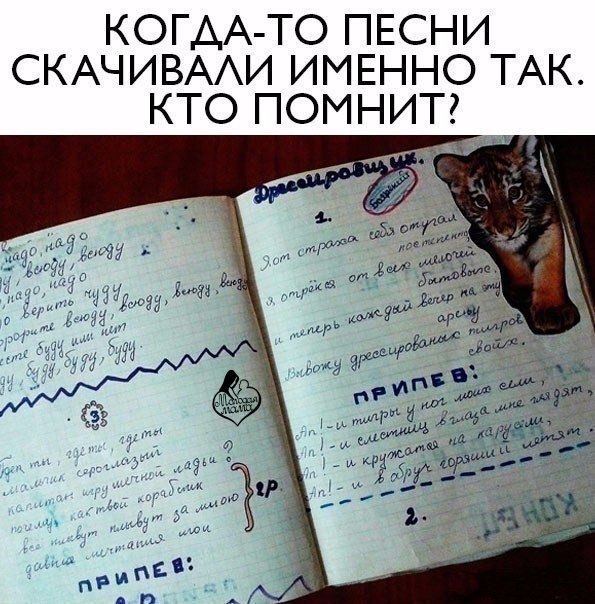 КОГДА-ТО ПЕСНИ
СКАЧИВАЛИ ИМЕННО ТАК.
КТО ПОМНИТ?
надо, надо
всюду, всюду
надо, надо
верить чуду
всюду, всюду, всюду, всюду
буду или нет
буду, буду, буду, буду.
3
где ты, где ты
мальчик сероглазый
капитан игрушечной ладьи ?
почему, как твой кораблик
все плывут плывут за мною
давние мечтания мои
2р.
ПРИПЕВ:
Молодая
мама
Дрессировщик.
Боярский
1.
Я от страха себя отучал
постепенно
я отрёкся от всех мелочей
бытовых.
и теперь каждый вечер на эту
арену
Вывожу дрессированых тигров
своих.
ПРИПЕВ:
Ап! - и тигры у ног моих сели,
Ап! - и с лестниц в глаза мне глядят,
Ап! - и кружатся на карусели,
Ап! - и в обруч горящий летят.
2.
КОНЕЦ